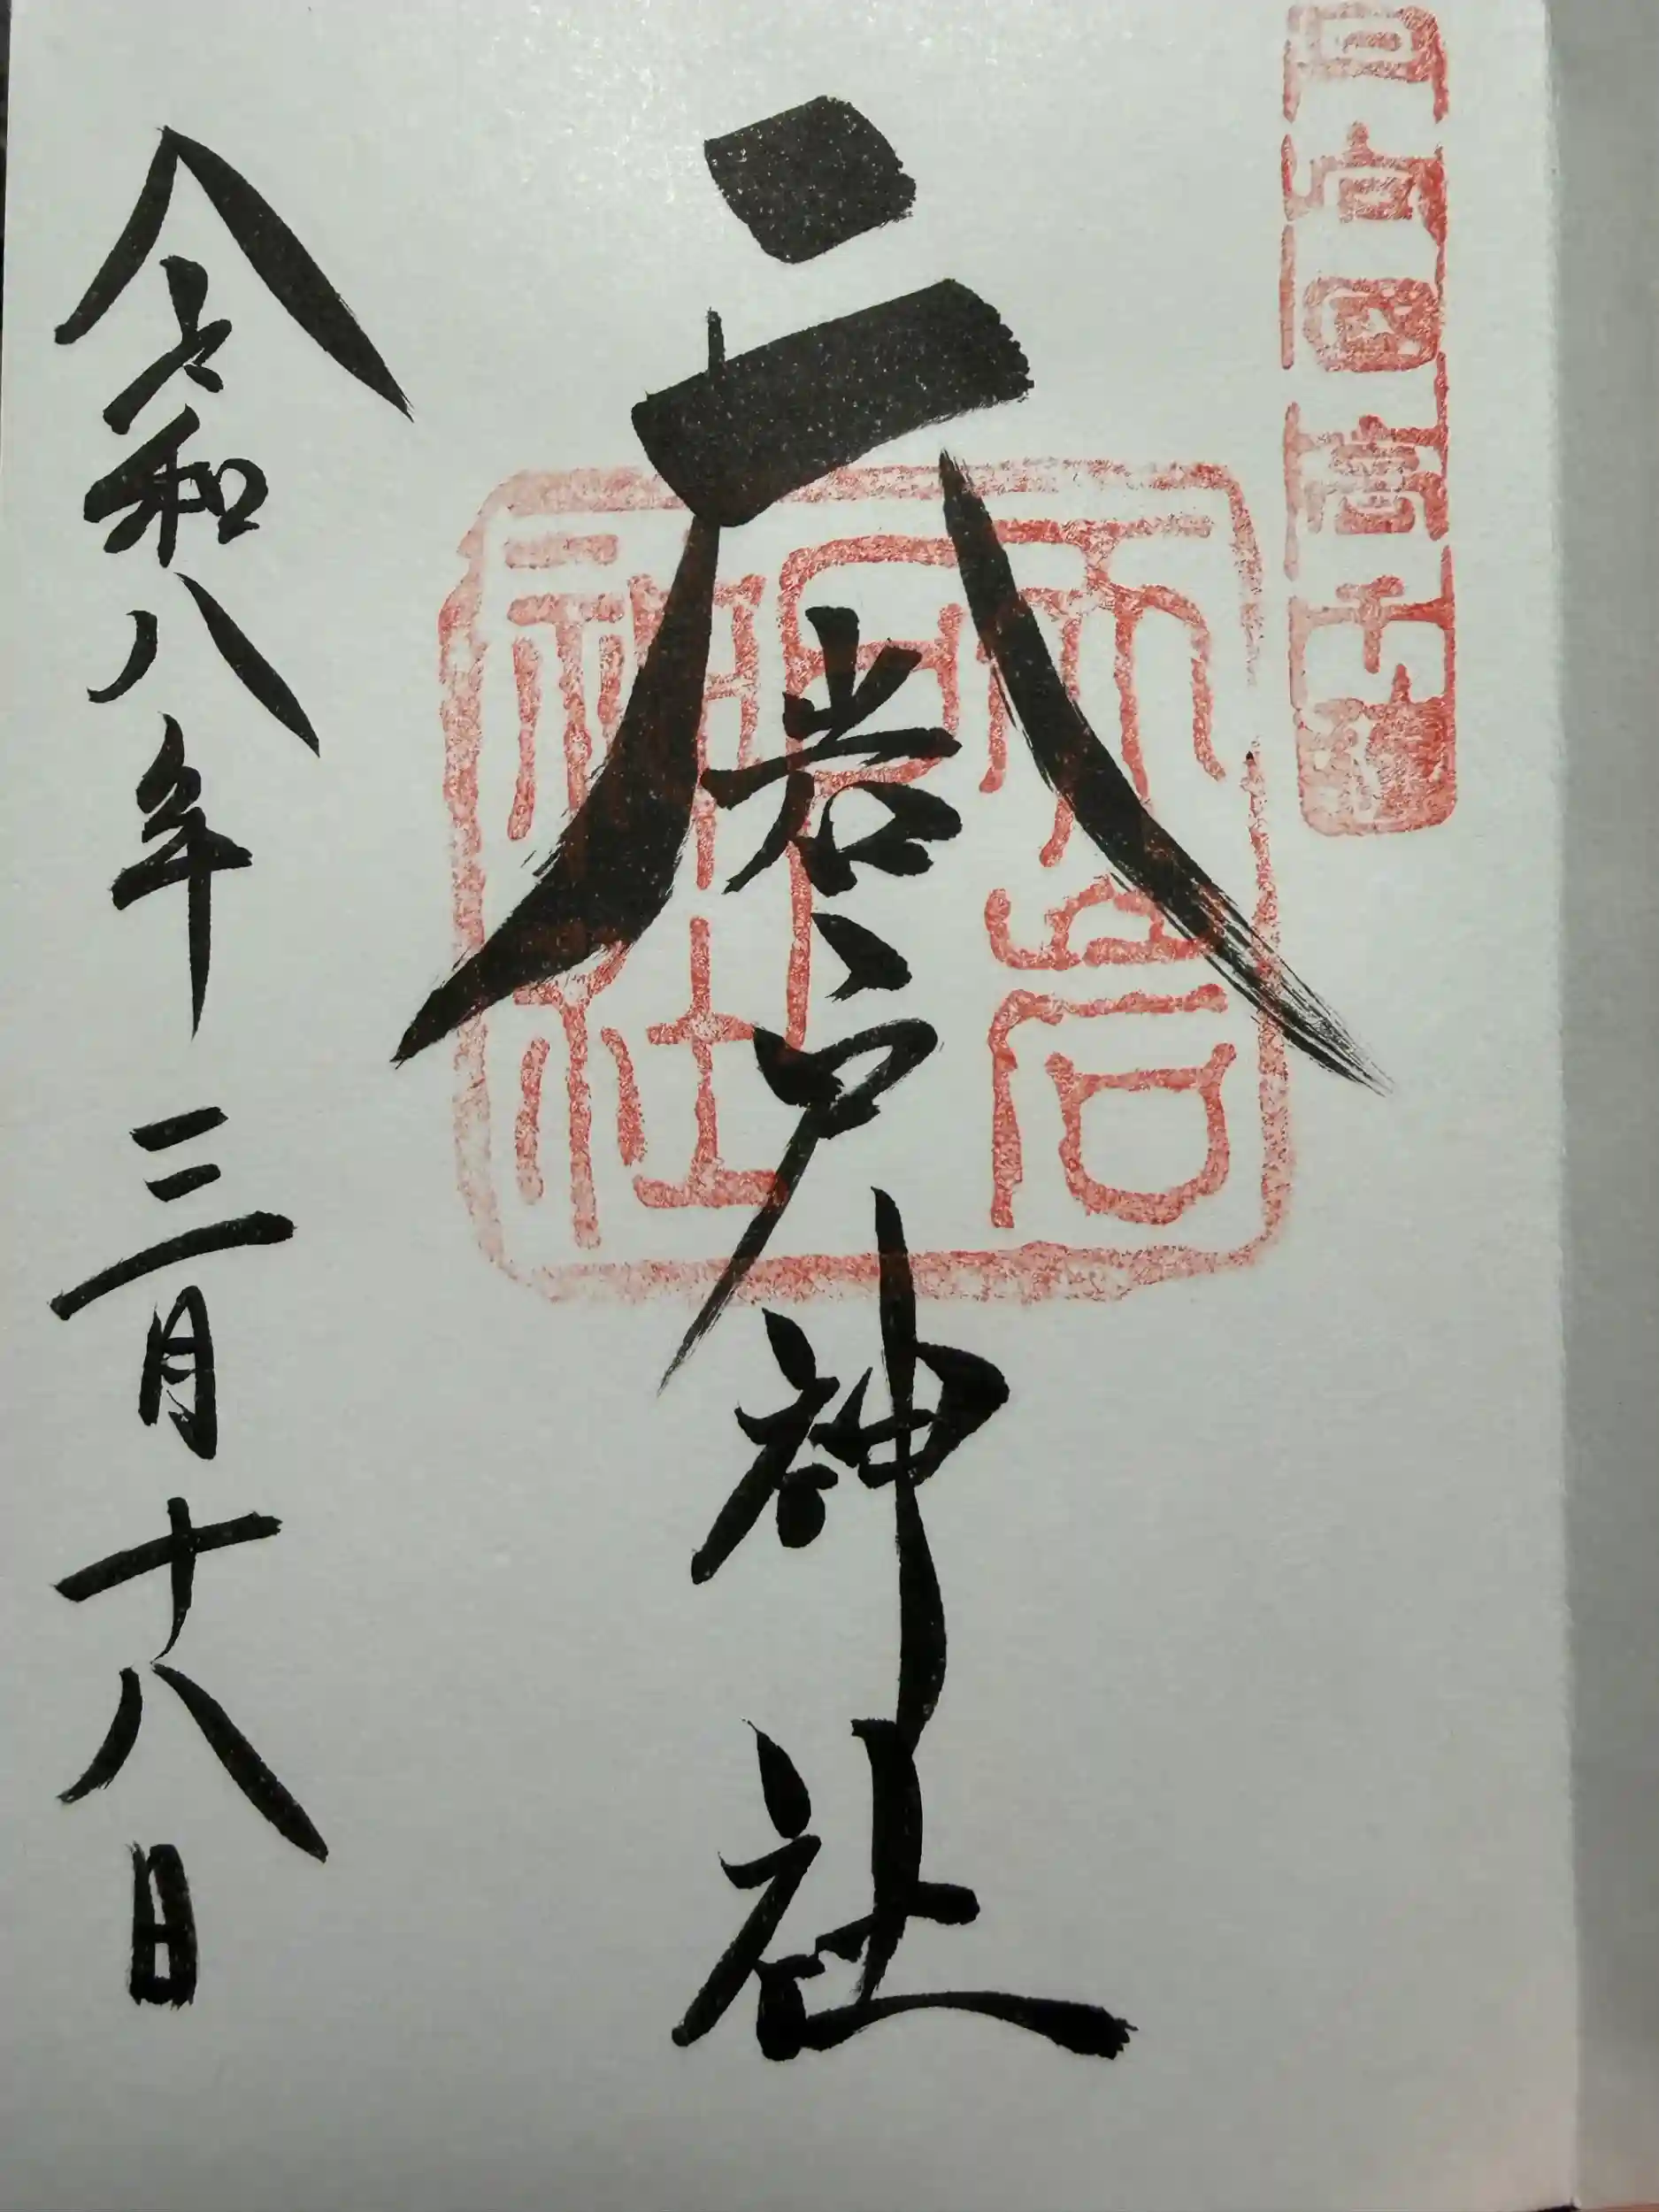 日向国高千穂
天岩戸神社
天岩戸神社
令和八年三月十八日